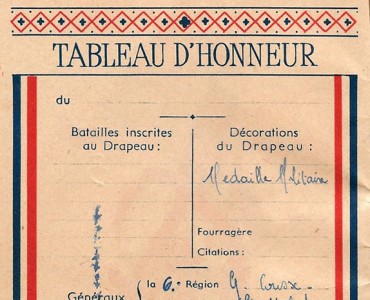 TABLEAU D'HONNEUR
du
Batailles inscrites
au Drapeau :
Décorations
du Drapeau :
Medaille Militaire
Fourragère
Citations :
Généraux
la 6e Région G.